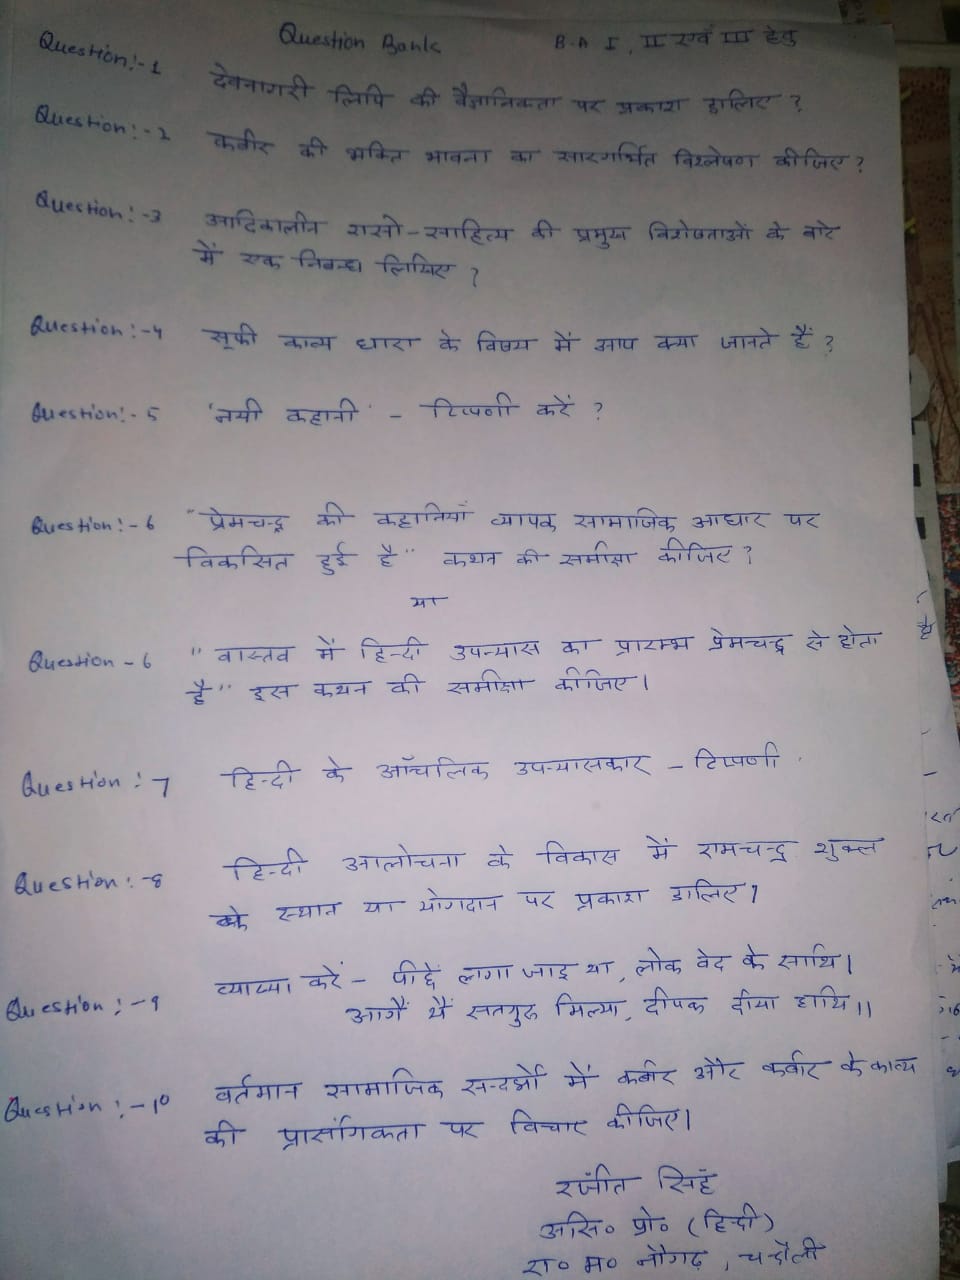 Question Bank B.A I, II एवं III हेतु
Question:-1 देवनागरी लिपि की वैज्ञानिकता पर प्रकाश डालिए ?
Question:-2 कबीर की भक्ति भावना का सारगर्भित विश्लेषण कीजिए ?
Question:-3 आदिकालीन रासो-साहित्य की प्रमुख विशेषताओं के बारे
में एक निबन्ध लिखिए ?
Question:-4 सूफी काव्य धारा के विषय में आप क्या जानते हैं ?
Question:-5 'नयी कहानी' - टिप्पणी करें ?
Question:-6 "प्रेमचन्द्र की कहानियाँ व्यापक सामाजिक आधार पर
विकसित हुई है" कथन की समीक्षा कीजिए ?
या
Question-6 "वास्तव में हिन्दी उपन्यास का प्रारम्भ प्रेमचन्द्र से होता
है" इस कथन की समीक्षा कीजिए।
Question:-7 हिन्दी के आँचलिक उपन्यासकार - टिप्पणी
Question:-8 हिन्दी आलोचना के विकास में रामचन्द्र शुक्ल
के स्थान या योगदान पर प्रकाश डालिए ?
Question:-9 व्याख्या करें - पीछैं लागा जाइ था, लोक वेद के साथि।
आगैं थैं सतगुरु मिल्या, दीपक दीया हाथि।।
Question:-10 वर्तमान सामाजिक सन्दर्भों में कबीर और कबीर के काव्य
की प्रासंगिकता पर विचार कीजिए।
रंजीत सिंह
असि० प्रो० (हिन्दी)
रा० म० नौगढ़, चन्दौली